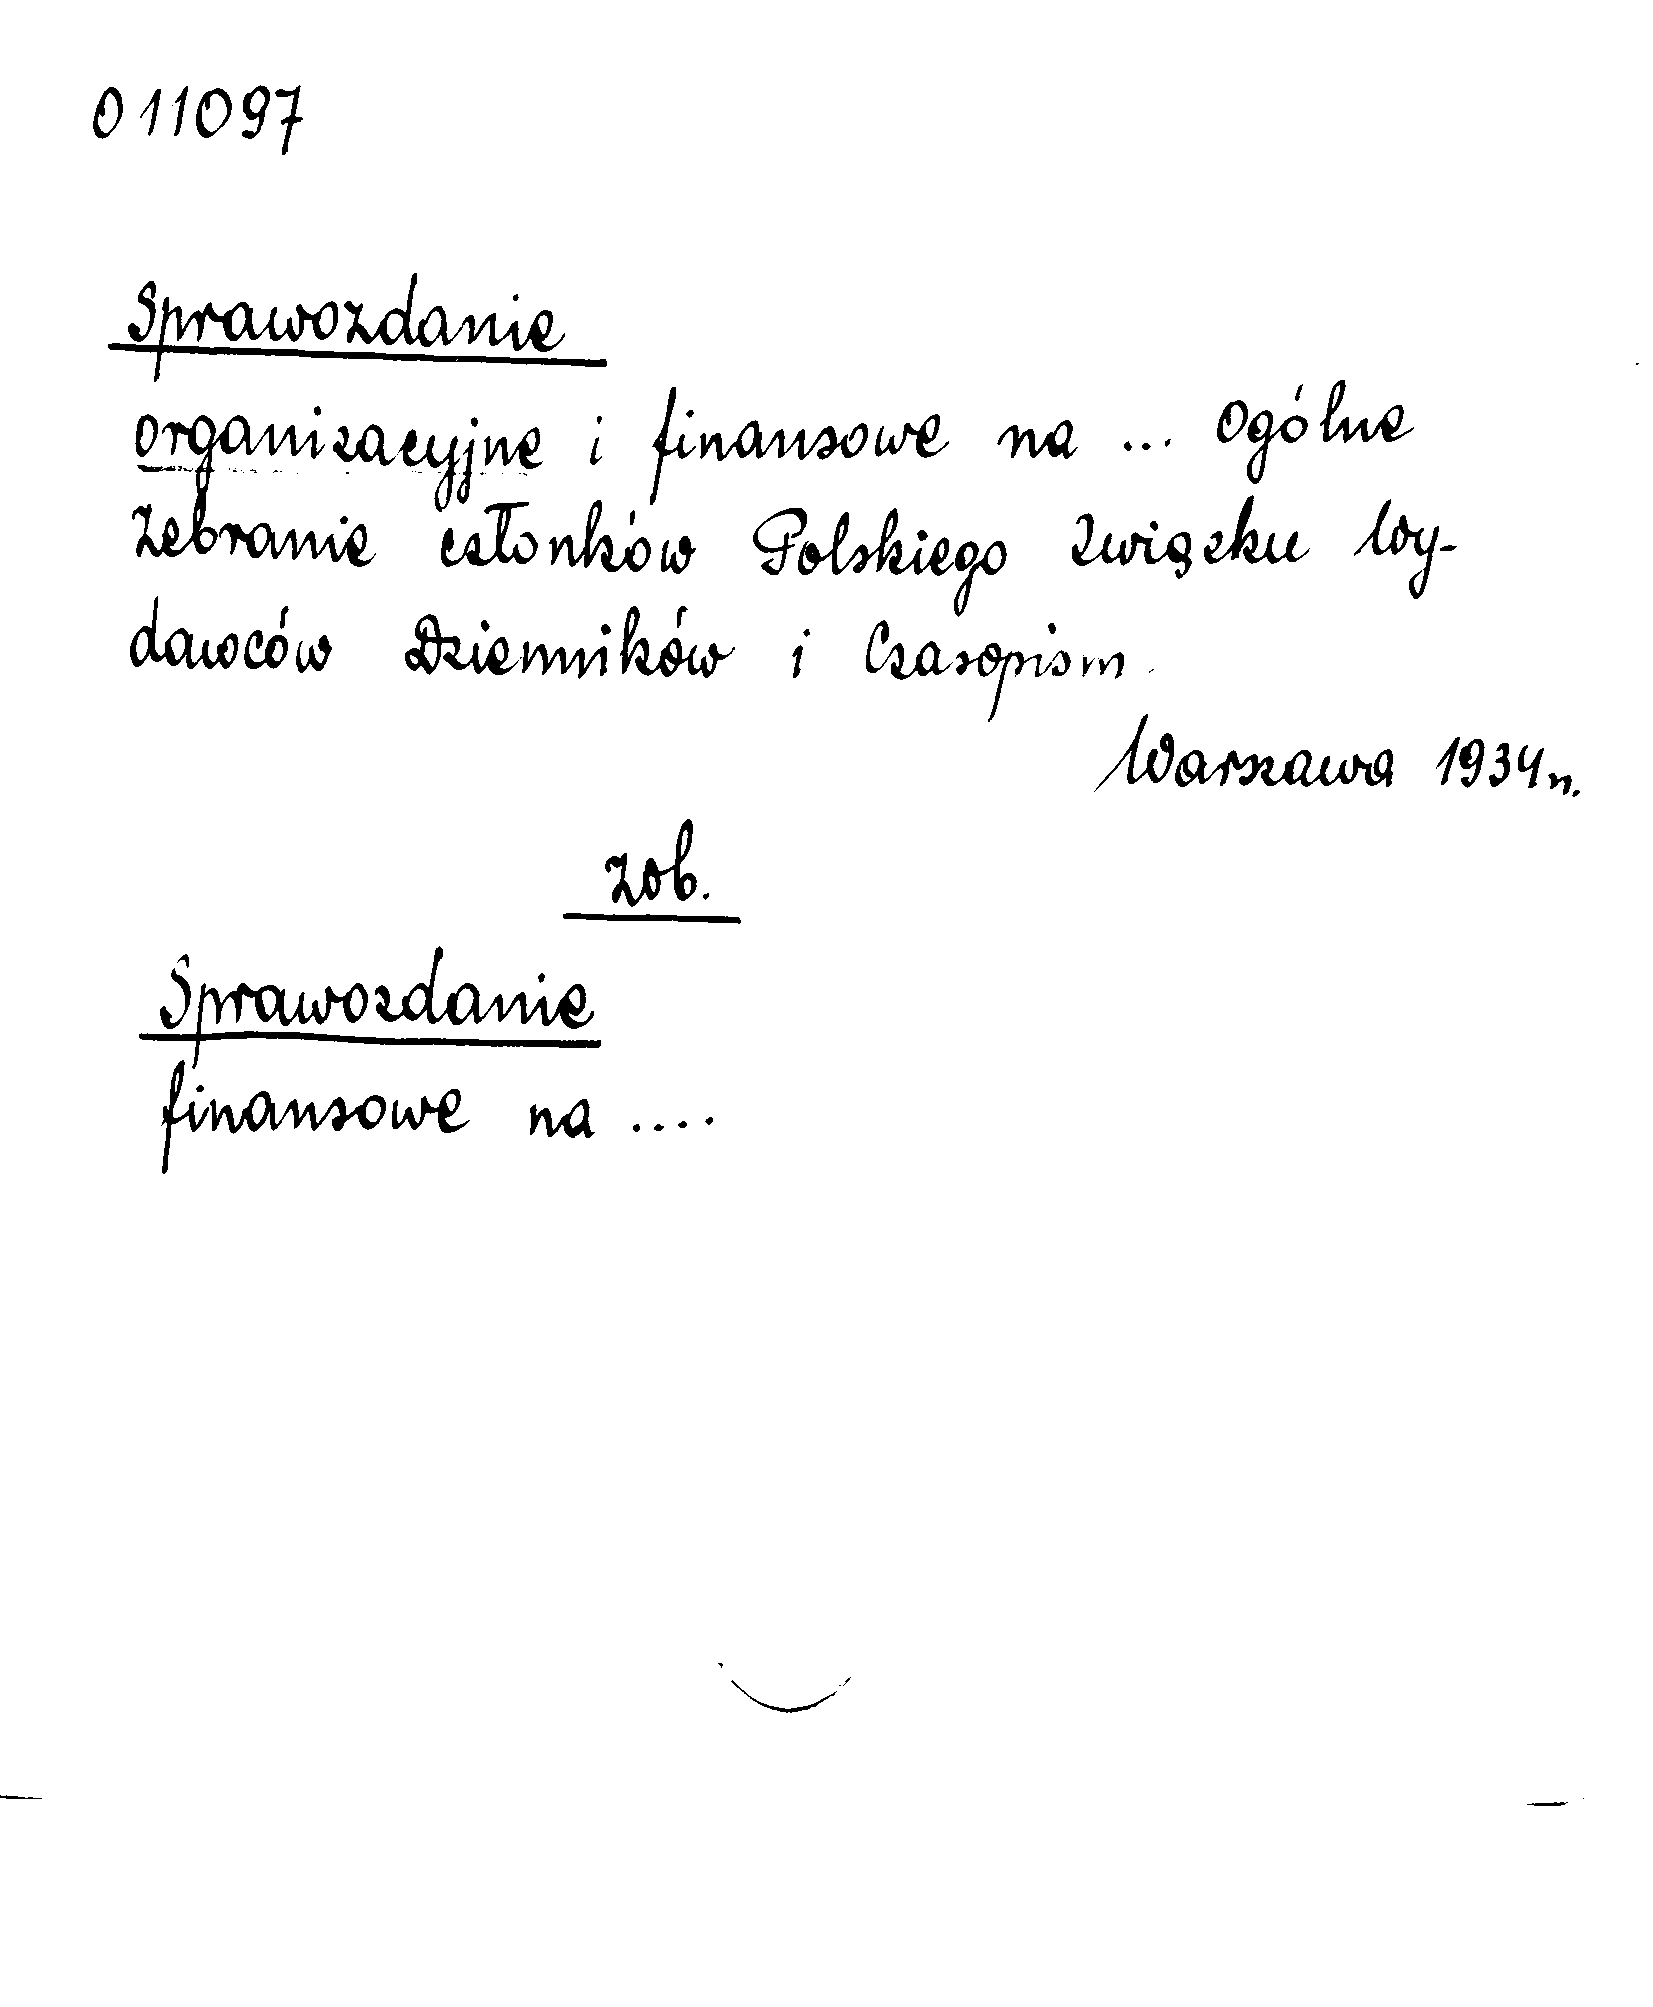 011097
Sprawozdanie
organizacyjne i finansowe na ... Ogólne
Zebranie członków Polskiego Związku Wy-
dawców Dzienników i Czasopism.
Warszawa 1934r.
zob.
Sprawozdanie
finansowe na ....